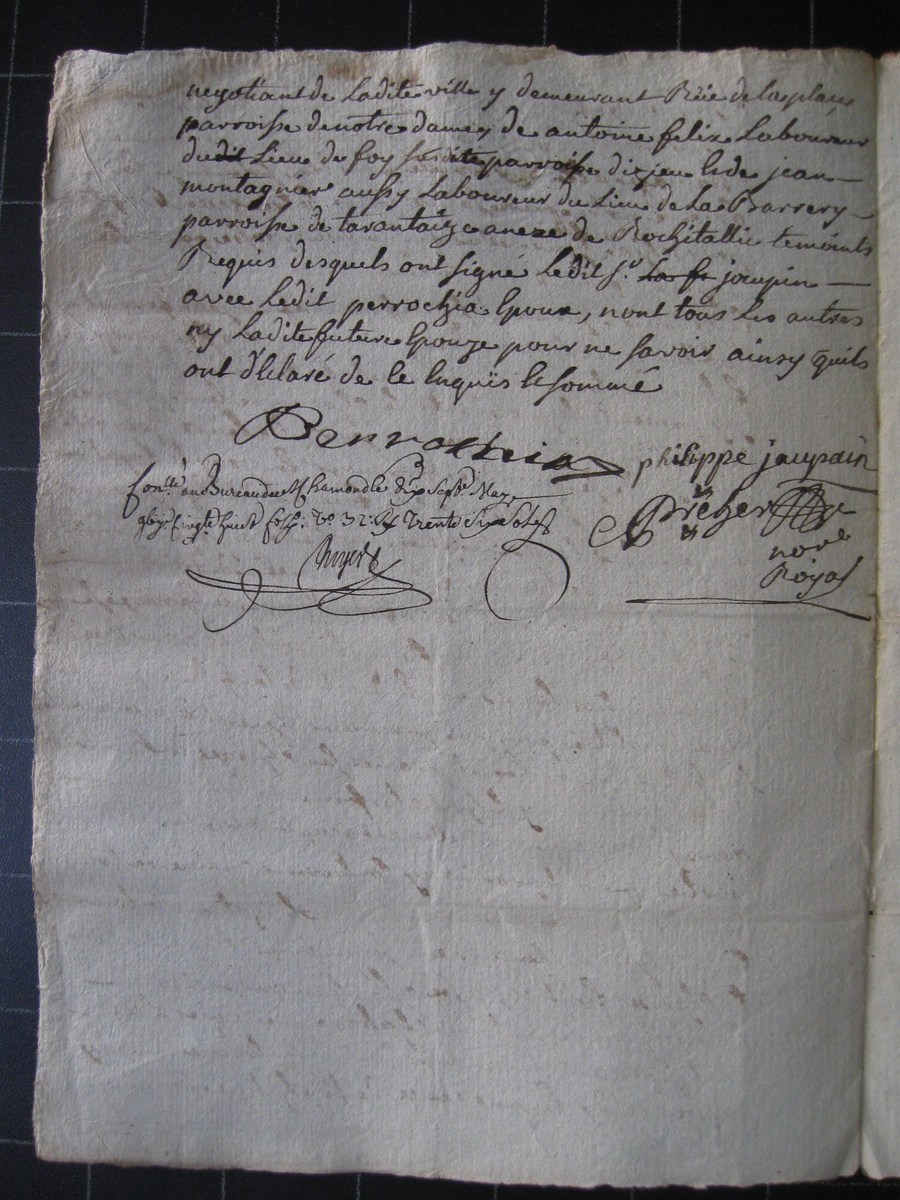 negotiant de Ladite ville y demeurant Rüe de la place
parroisse de notre dame, de antoine felix Laboureur
dudit Lieu de foy susdite parroisse dizieu et de jean
montagnier aussy Laboureur du Lieu de La Barrery
parroisse de tarantaize anexe de Rochitallié temoints
Requis desquels ont signé Ledit Sr. jaupin
avec Ledit perrochia Epoux, nont tous Les autres
ny Ladite future Epouze pour ne savoir ainsy quils
ont déclaré de ce Enquis et sommé
Perrochia philippe jaupain
Conllé au Bureau de St Chamond le dix Sept
Trente Six Sols
Preher
nore
Royal